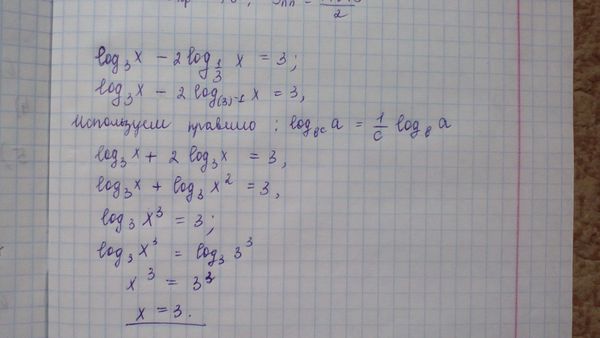 log₃x − 2log_{1/3} x = 3;
log₃x − 2log_{(3)-1} x = 3,
Используем правило: log_{в^c} a = 1/c log_в a
log₃x + 2 log₃x = 3,
log₃x + log₃x² = 3,
log₃x³ = 3;
log₃x³ = log₃3³
x³ = 3³
x = 3.